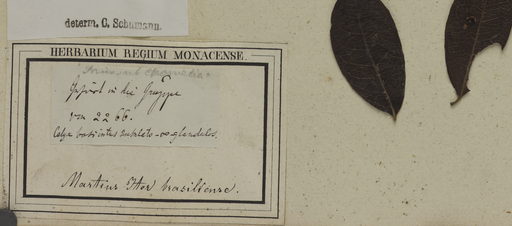 determ. C. Schumann.
HERBARIUM REGIUM MONACENSE.
Gehört in die Gruppe
von 2266.
Calyx basi intus
Martius Iter brasiliense.